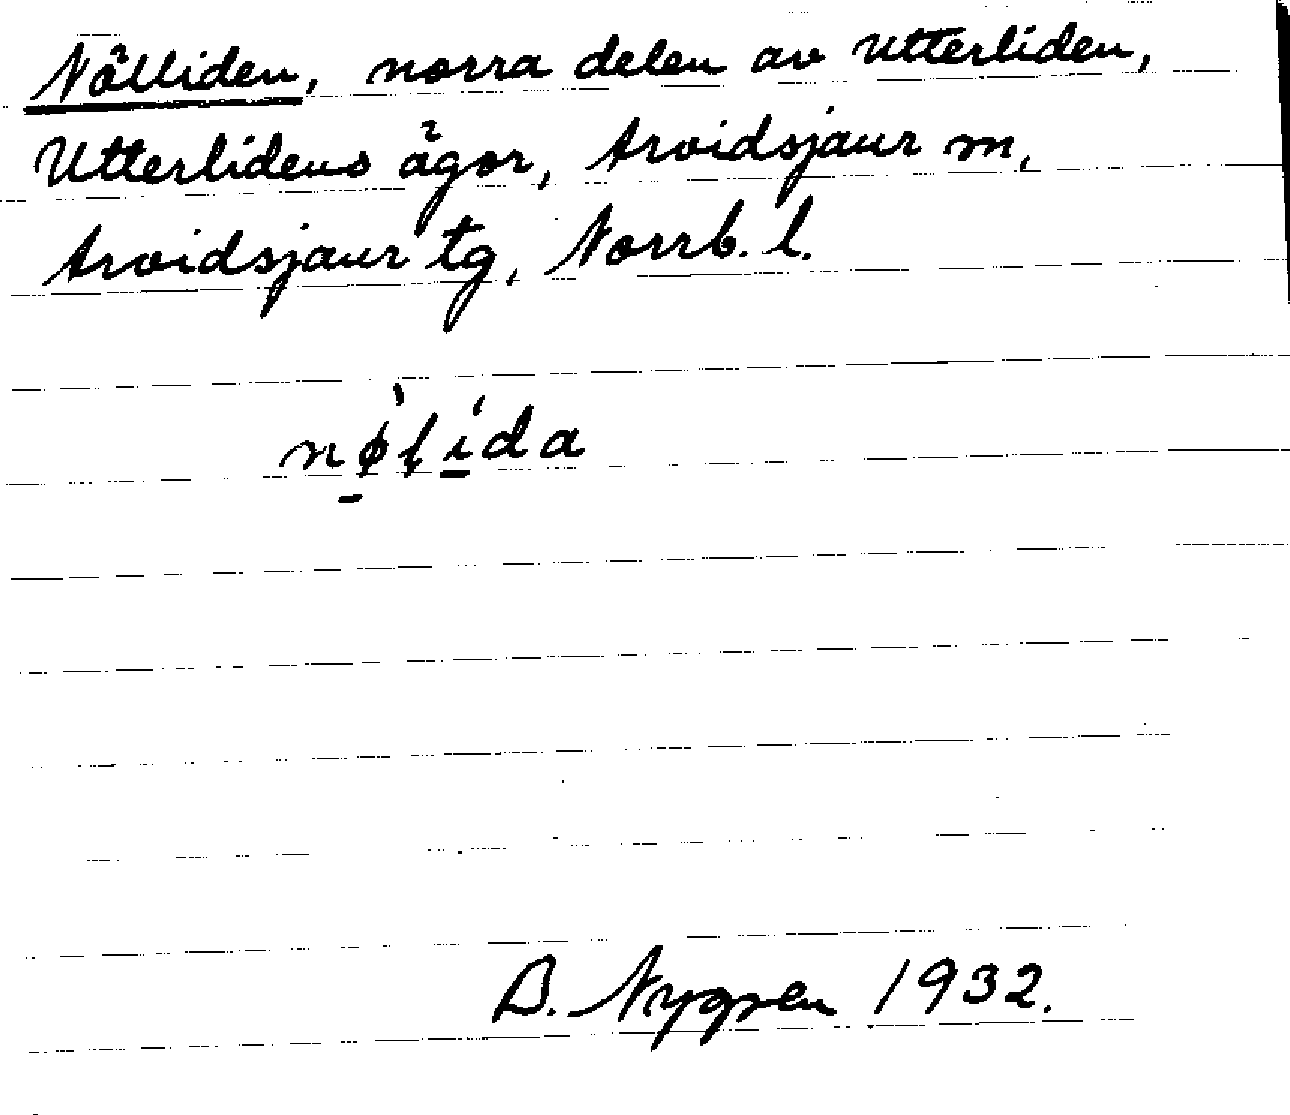 Nölliden, norra delen av Utterliden,
Utterlidens ägor, Arvidsjaur m,
Arvidsjaur tg, Norrb. l.
B. Nygren 1932.